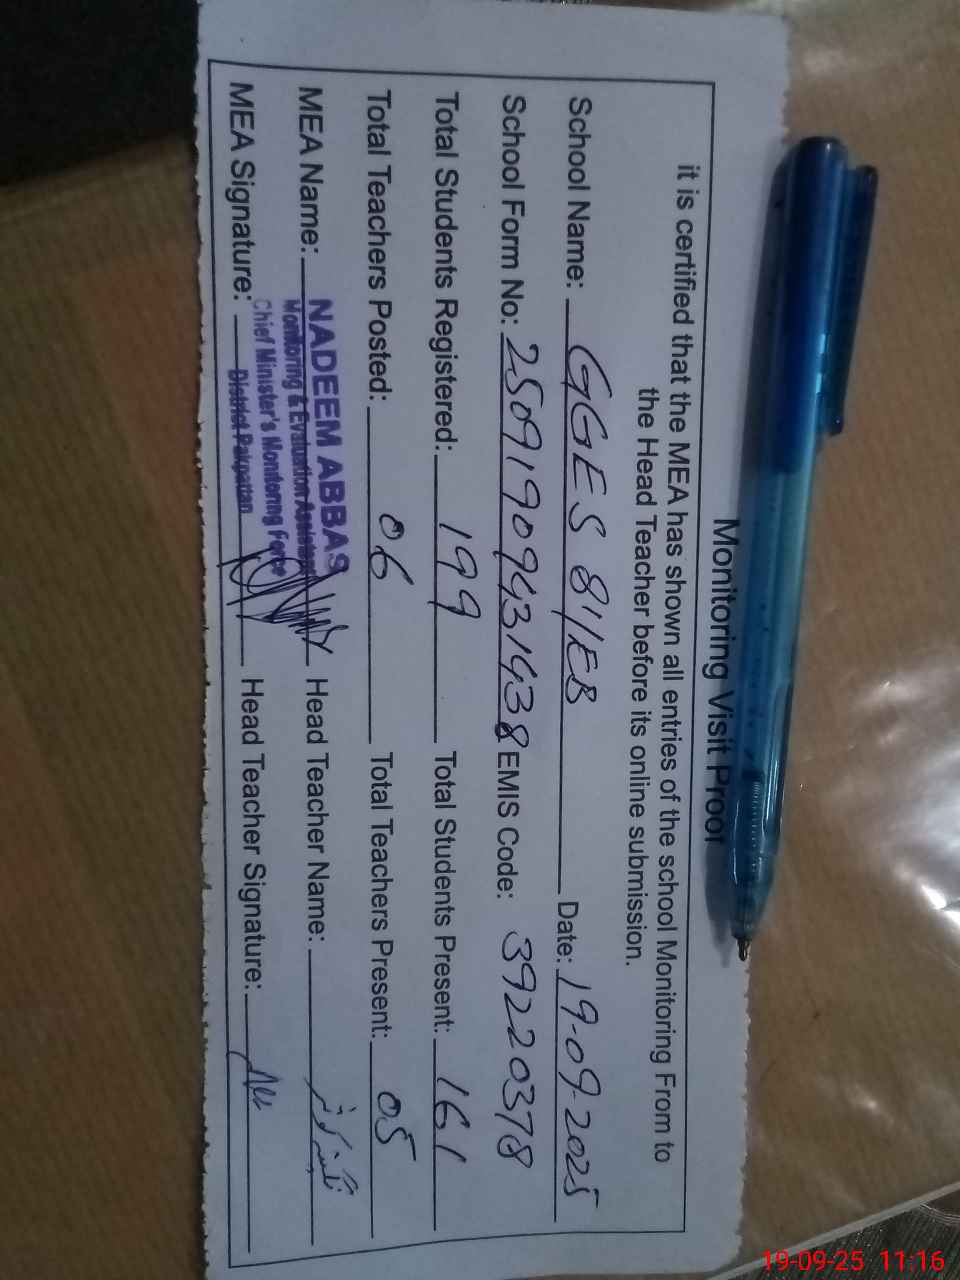 Monitoring Visit Proof
it is certified that the MEA has shown all entries of the school Monitoring From to
the Head Teacher before its online submission.
School Name: GGES 81/EB Date: 19-09-2025
School Form No: 25091909431438 EMIS Code: 39220378
Total Students Registered: 199 Total Students Present: 161
Total Teachers Posted: 06 Total Teachers Present: 05
MEA Name: NADEEM ABBAS Head Teacher Name:
Monitoring & Evaluation Assistant
Chief Minister's Monitoring Force
MEA Signature: District Pakpattan Head Teacher Signature:
19-09-25 11:16